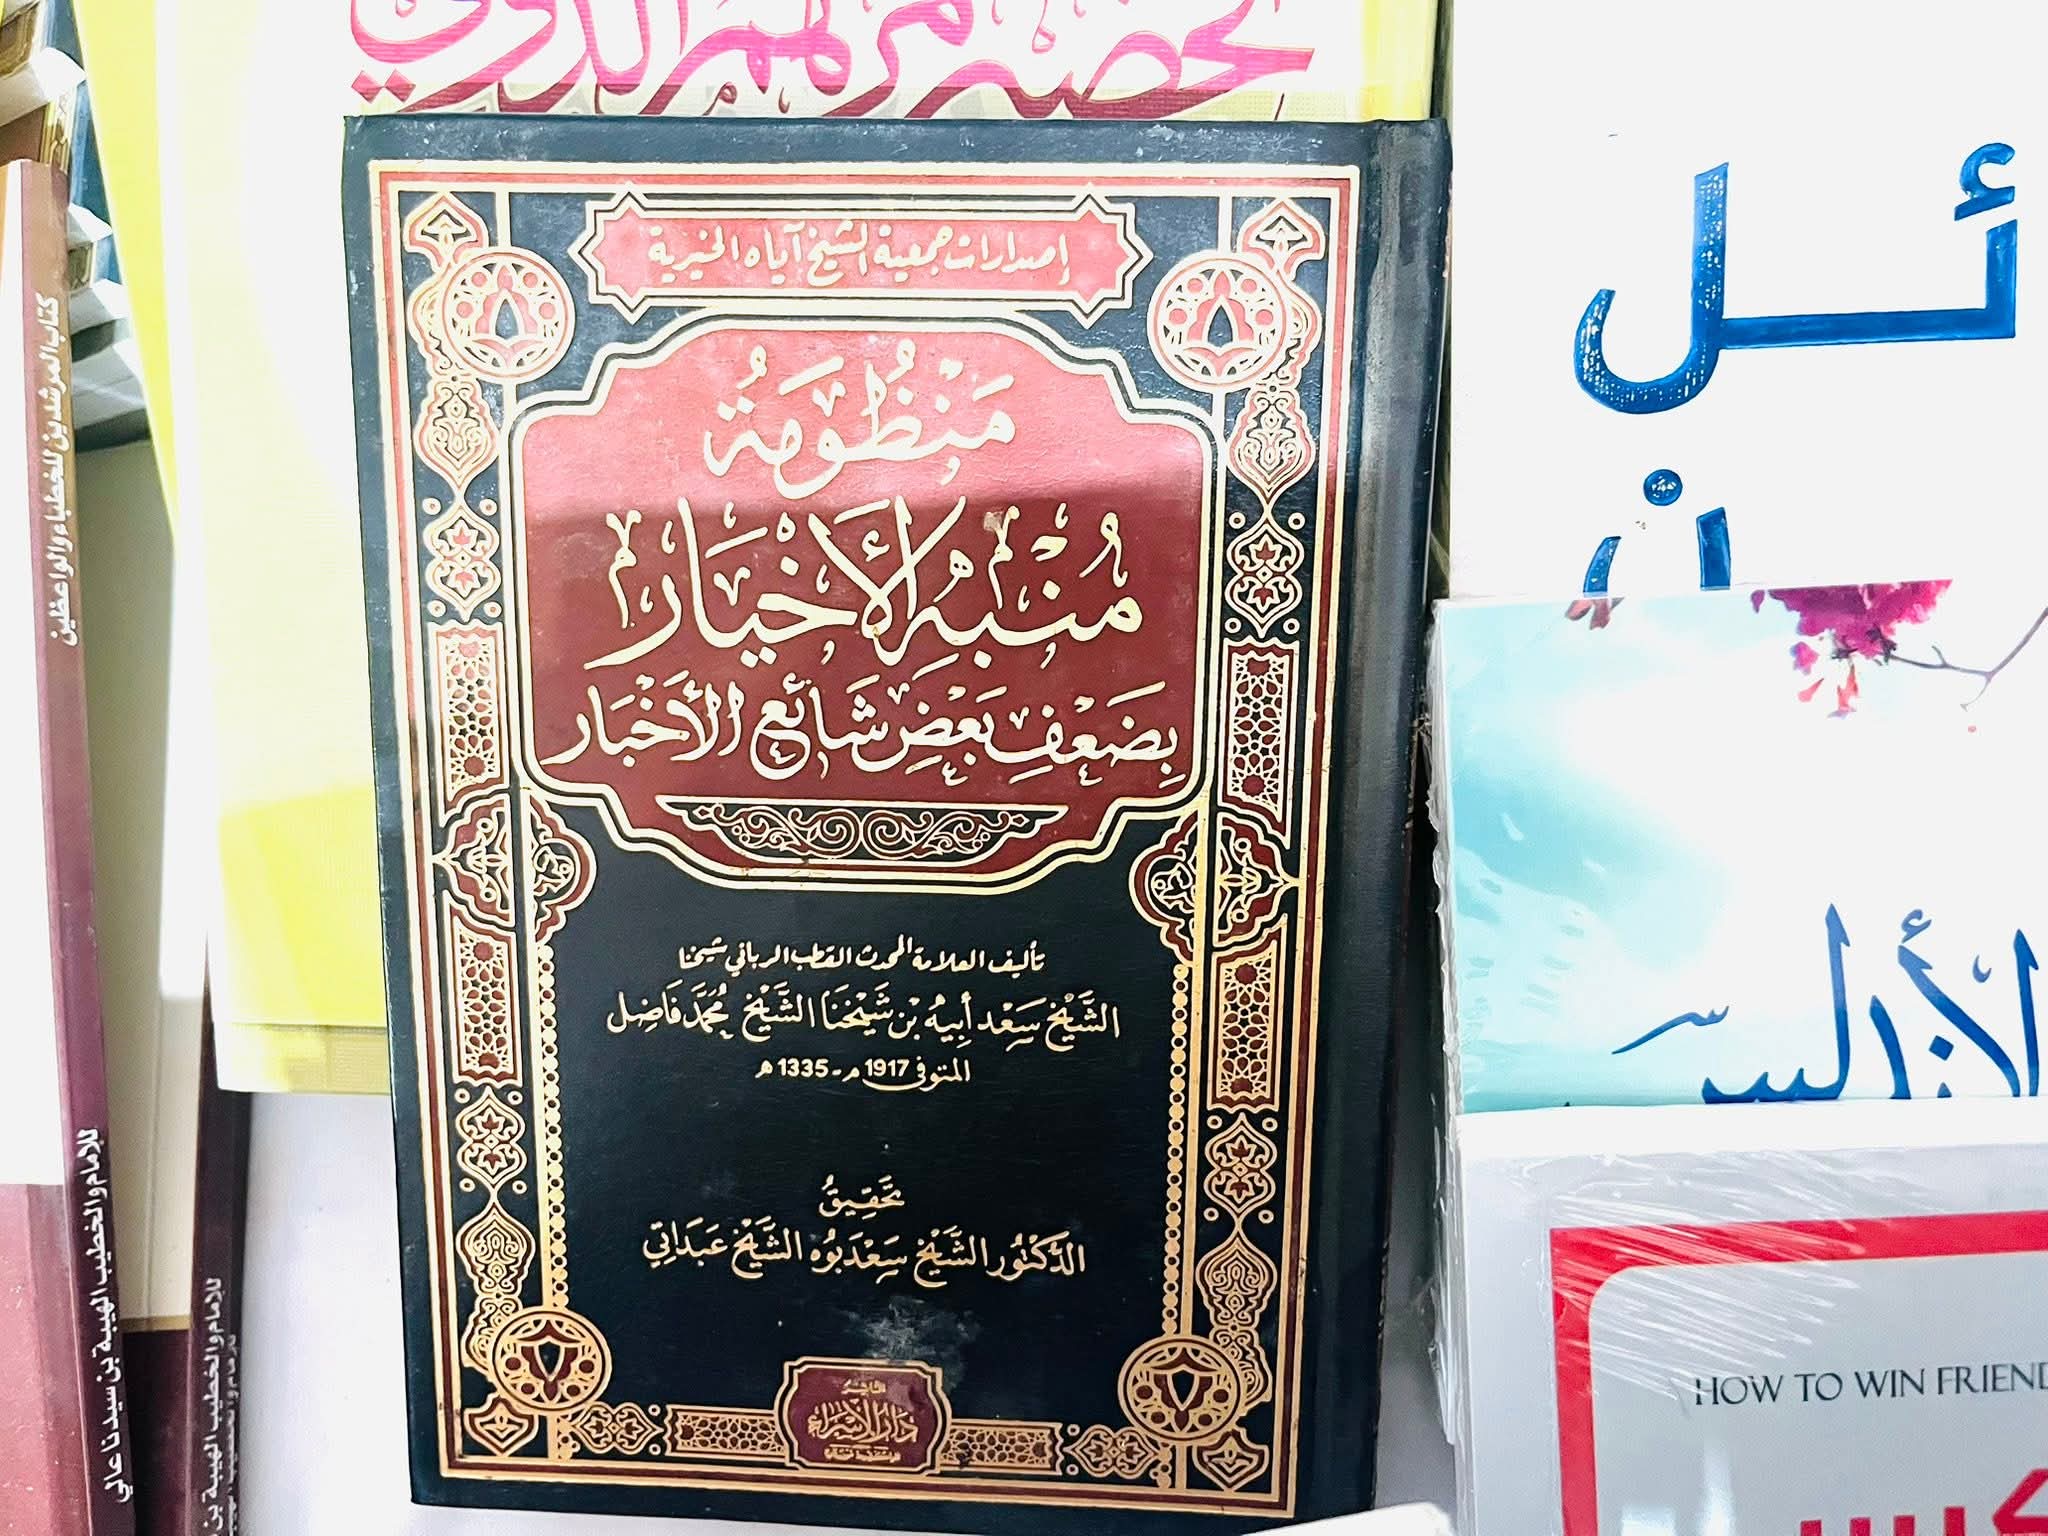 إصدارات جمعية الشيخ آياه الخيرية
مَنْظُومَةُ
مُنْبِهُ الأَخْيَارِ
بِضَعْفِ بَعْضِ شَائِعِ الأَخْبَارِ
تأليف العلامة المحدث القطب الرباني شيخنا
الشَّيْخ سَعْد أَبِيهْ بْن شَيْخنَا الشَّيْخ مُحَمَّد فَاضِل
المتوفى 1917 م - 1335 هـ
تَحْقِيقُ
الدَّكْتُور الشَّيْخ سَعْدبُوه الشَّيْخ عَبدَاتِي
الناشر
دار الإسراء
كتاب المرشدين للخطباء والواعظين
للإمام والخطيب الهيبة بن سيدنا عالي
للإمام والخطيب الهيبة بن
ئل
الأندلس
HOW TO WIN FRIEND